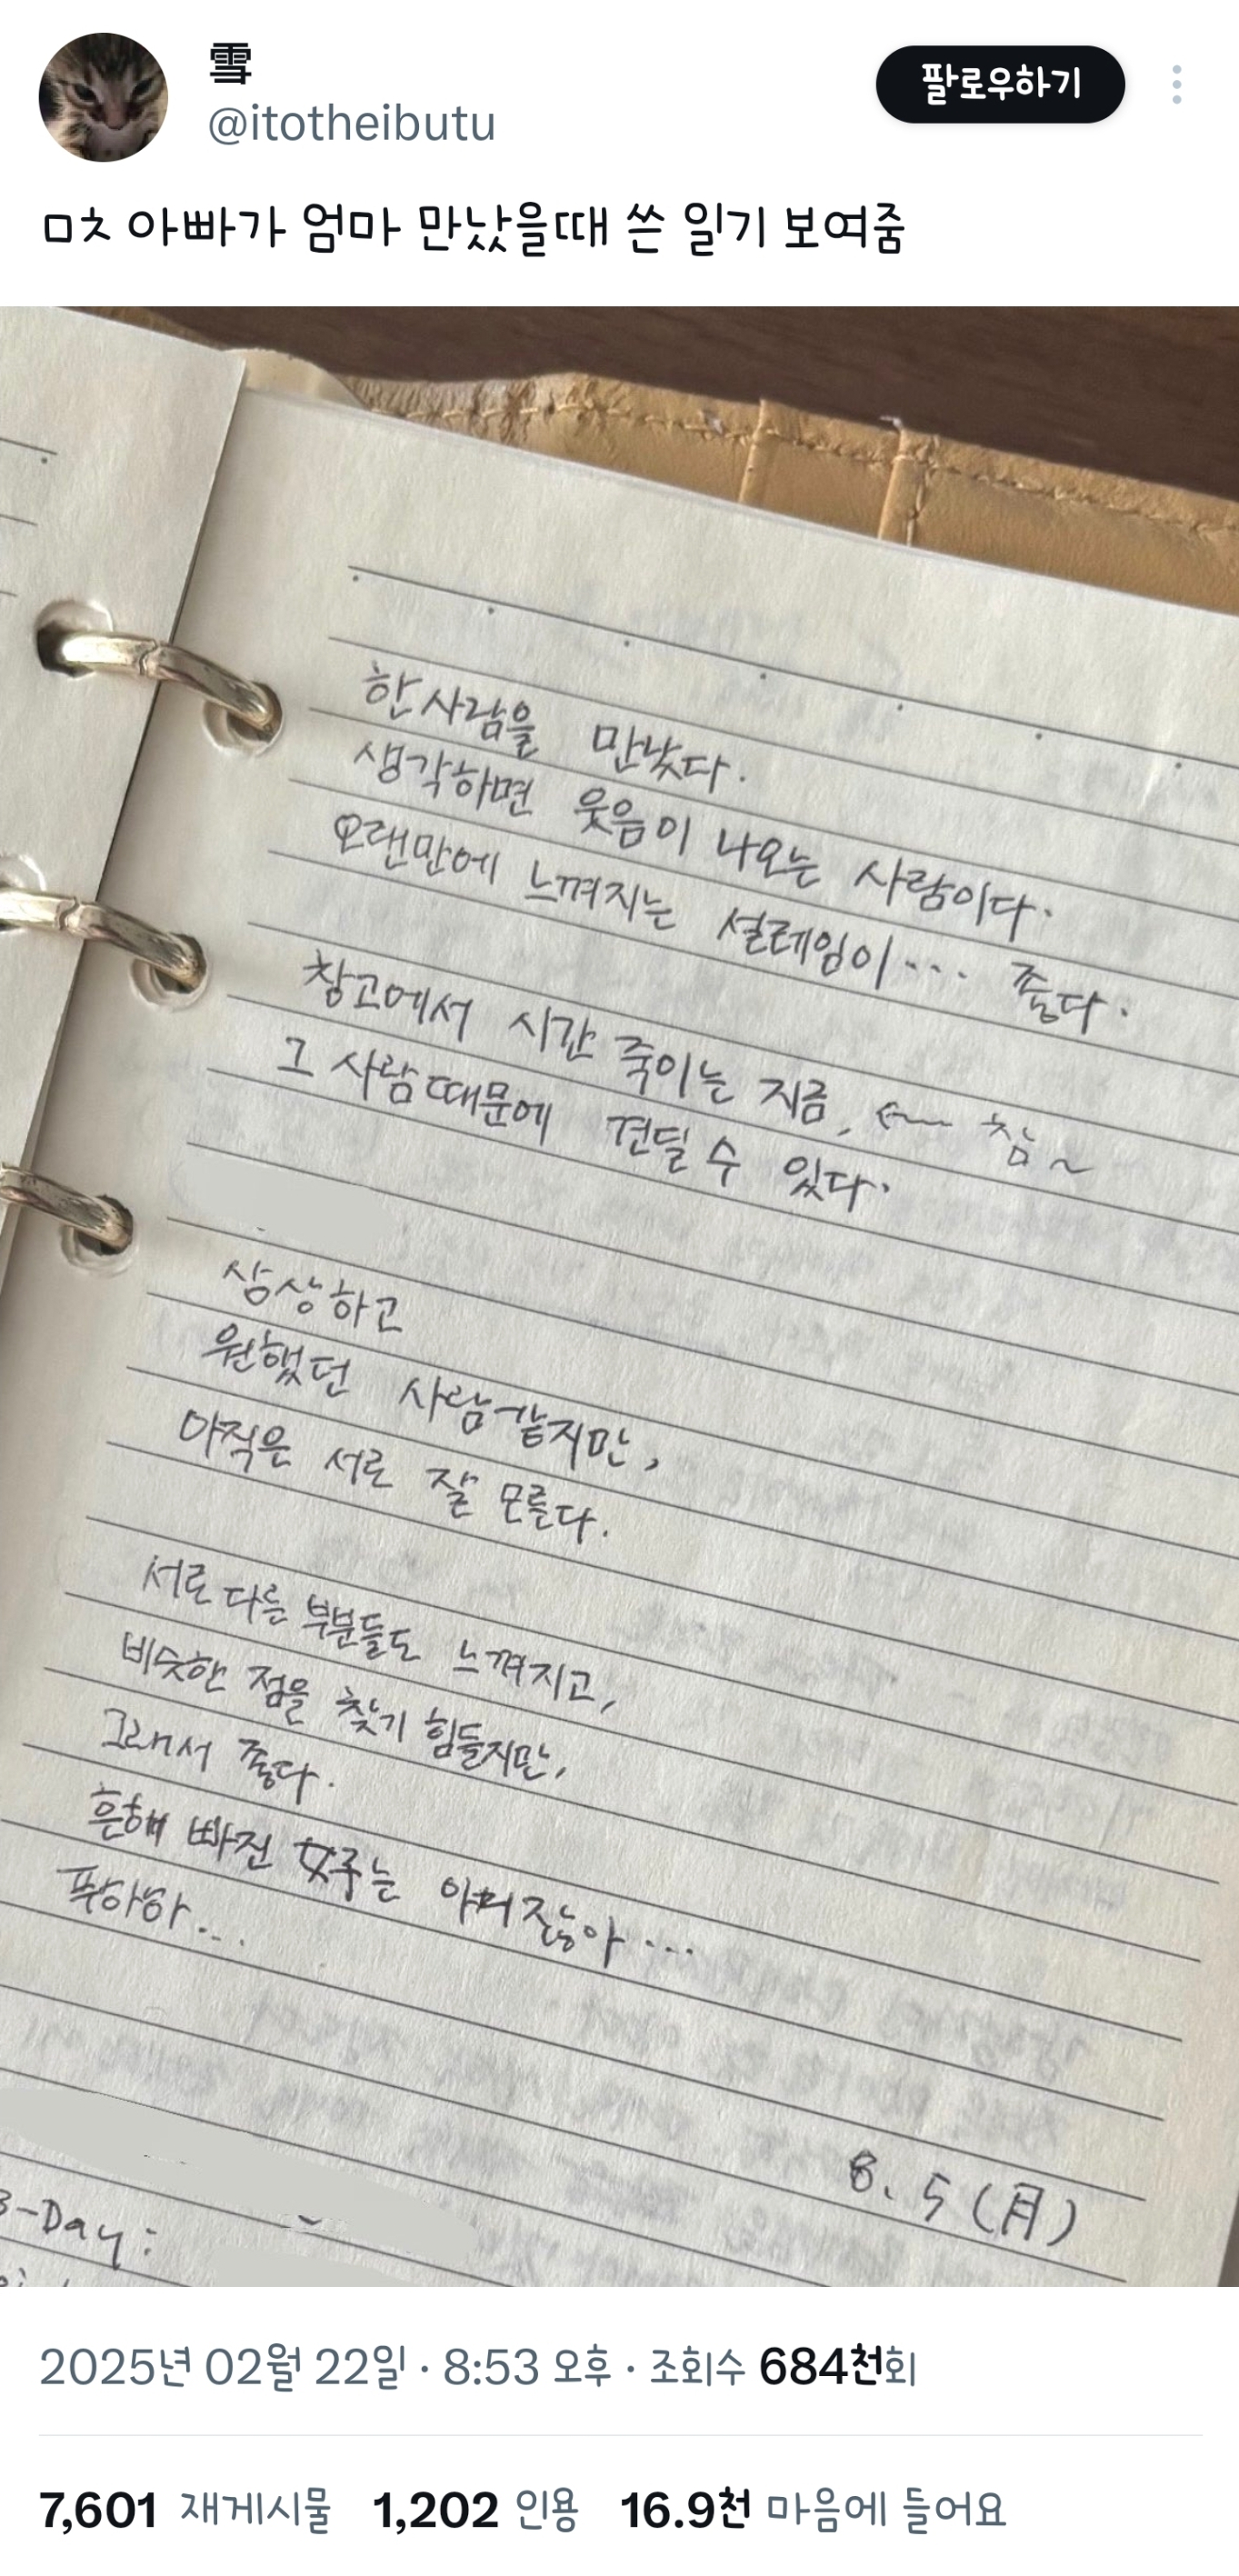 雪
팔로우하기
@itotheibutu
ㅁㅊ 아빠가 엄마 만났을때 쓴 일기 보여줌
한 사람을 만났다.
생각하면 웃음이 나오는 사람이다.
오랜만에 느껴지는 설레임이··· 좋다.
창고에서 시간 죽이는 지금, ← 참~
그 사람때문에 견딜 수 있다.
상상하고
원했던 사람같지만,
아직은 서로 잘 모른다.
서로 다른 부분들도 느껴지고,
비슷한 점을 찾기 힘들지만,
그래서 좋다.
흔해 빠진 女주는 아니잖아···
푸하하...
8. 5 (月)
-Day:
2025년 02월 22일 · 8:53 오후 · 조회수 684천회
7,601 재게시물 1,202 인용 16.9천 마음에 들어요